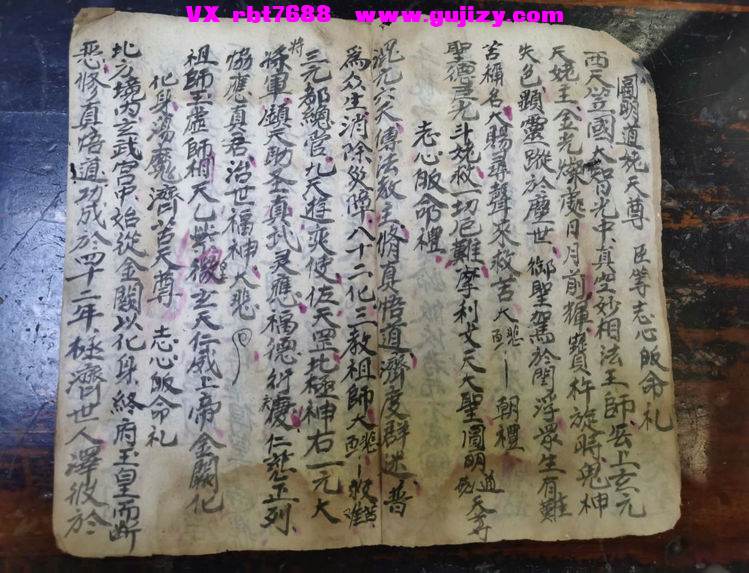 VX rbt7688 www.gujizy.com
圓明道姥天尊 臣等志心皈命礼
西天竺國大智光中真空妙相法王師無上玄元
天姥主金光燦處日月前輝寶杵旋時鬼神
失色顕靈蹤於塵世御聖駕於閻浮衆生有難
若稱名大賜尋聲來救苦大悲大願 朝禮
聖德巨光斗姥救一切厄難摩利攴天大聖圓明道姥天尊
志心皈命禮
混元六天傳法教主脩真悟道濟度群迷普
為众生消除災障八十二化三教祖師大悲大願救苦救難
三元都總管九天遊奕使佐天罡北極神右一元大將
將軍鎮天助圣真武灵應福德衍慶仁慈正列
協應真君治世福神大悲
祖師玉虛師相天乙紫微玄天仁威上帝金闕化
化身荡魔濟苦天尊 志心皈命礼
北方境内玄武宮中始從金闕以化身終府玉皇而断
恶修真悟道功成於四十二年極濟世人澤被於